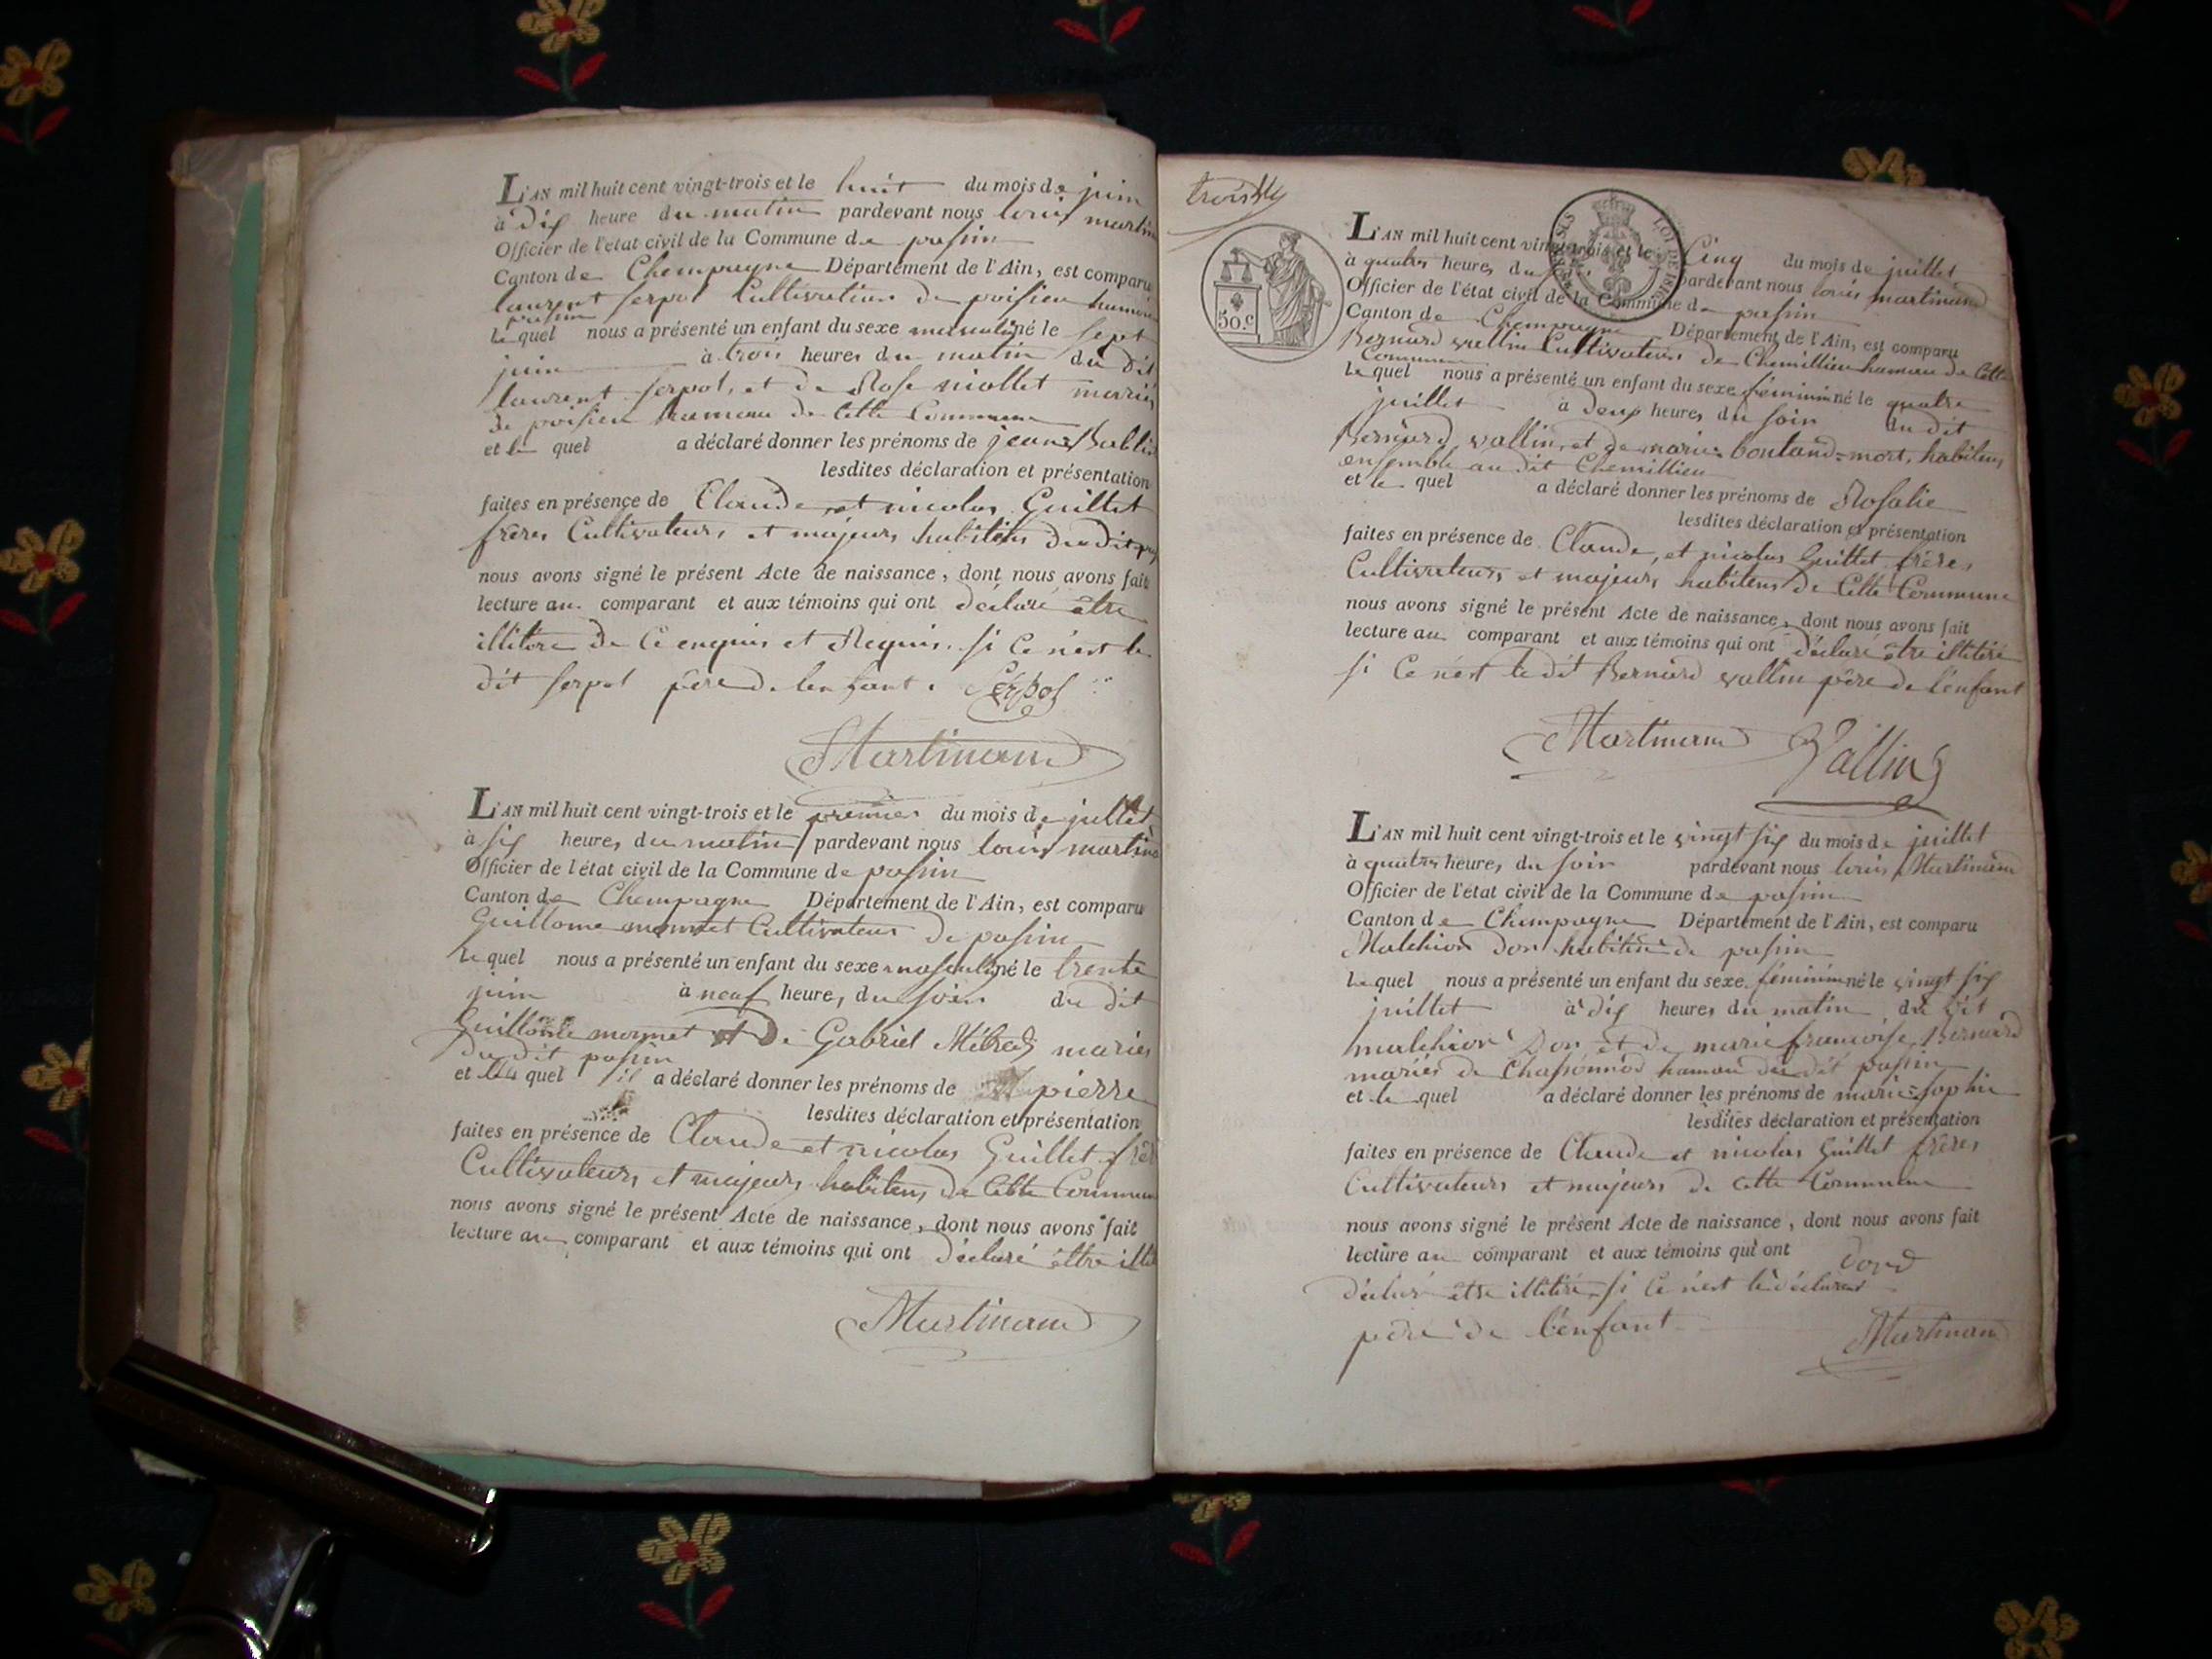 L'AN mil huit cent vingt-trois et le huit du mois de juin
à dix heure du matin pardevant nous louis martin
Officier de l'état civil de la Commune de passin
Canton de Champagne Département de l'Ain, est comparu
laurent serpol Cultivateur de poisieu hameau
passin
le quel nous a présenté un enfant du sexe masculin né le sept
juin à trois heures du matin du dit
laurent serpol, et de Rose niollet mariés
de poisieu hameau de Cette Commune
et le quel a déclaré donner les prénoms de jean
lesdites déclaration et présentation
faites en présence de Claude et nicolas Guillet
frères Cultivateurs et majeurs habitans du dit
nous avons signé le présent Acte de naissance, dont nous avons fait
lecture au comparant et aux témoins qui ont déclaré être
illitéré de Ce enquis et Requis. si Ce n'est le
dit serpol père de lenfant. Serpol
Martinand
L'AN mil huit cent vingt-trois et le premier du mois de juillet
à six heures du matin pardevant nous louis martina
Officier de l'état civil de la Commune de passin
Canton de Champagne Département de l'Ain, est comparu
Guillome monnet Cultivateur de passin
le quel nous a présenté un enfant du sexe masculin né le trente
juin à neuf heures du soir du dit
Guillome monnet et de Gabriel mariés
du dit passin
et le quel il a déclaré donner les prénoms de pierre
lesdites déclaration et présentation
faites en présence de Claude et nicolas Guillet frèr
Cultivateurs et majeurs habitans de Cette Commune
nous avons signé le présent Acte de naissance, dont nous avons fait
lecture au comparant et aux témoins qui ont déclaré être illi
Martinand
50.c
LOI DE
L'AN mil huit cent vingt-trois et le Cinq du mois de juillet
à quatre heures du pardevant nous louis martinand
Officier de l'état civil de la Commune de passin
Canton de Champagne Département de l'Ain, est comparu
Bernard vallin Cultivateur de Chemillieu hameau de Cette
Commune
le quel nous a présenté un enfant du sexe féminin né le quatre
juillet à deux heures du soir du dit
Bernard vallin, et de marie boutand=mort, habitans
ensemble au dit Chemillieu
et le quel a déclaré donner les prénoms de Rosalie
lesdites déclaration et présentation
faites en présence de Claude, et nicolas Guillet frères
Cultivateurs et majeurs habitans de Cette Commune
nous avons signé le présent Acte de naissance, dont nous avons fait
lecture au comparant et aux témoins qui ont déclaré être illitéré
si Ce n'est le dit Bernard vallin père de l'enfant
Martinand Vallin
L'AN mil huit cent vingt-trois et le vingt six du mois de juillet
à quatre heures du soir pardevant nous louis Martinand
Officier de l'état civil de la Commune de passin
Canton de Champagne Département de l'Ain, est comparu
Malchior Don habitant de passin
le quel nous a présenté un enfant du sexe féminin né le vingt six
juillet à dix heures du matin du dit
malchior Don et de marie françoise Bernard
mariés de Chassonnod hameau du dit passin
et le quel a déclaré donner les prénoms de marie=sophie
lesdites déclaration et présentation
faites en présence de Claude et nicolas Guillet frères
Cultivateurs et majeurs de cette Commune
nous avons signé le présent Acte de naissance, dont nous avons fait
lecture au comparant et aux témoins qui ont
déclaré etre illitéré, si Ce n'est le déclarant
père de l'enfant Martinand